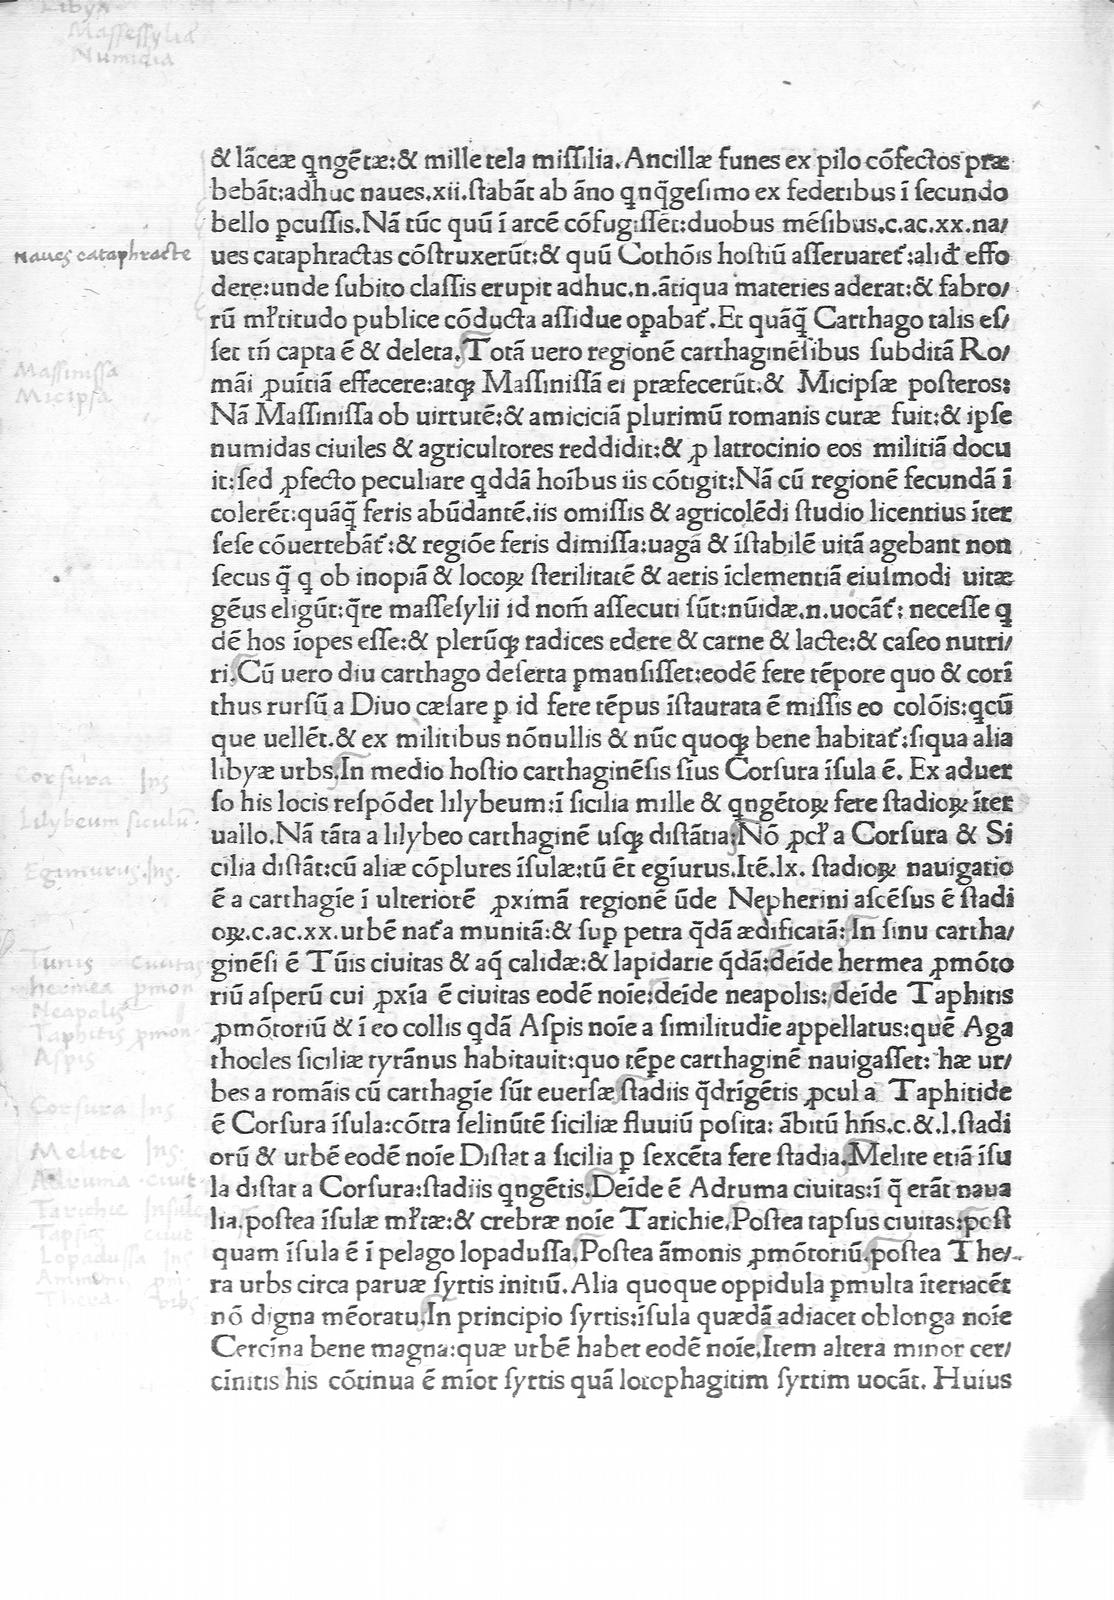 Libya
Massessyliæ
Numidia
& lãceæ qngẽtæ:& mille tela miſſilia. Ancillæ funes ex pilo cõfectos præ
bebãt:adhuc naues.xii.ſtabãt ab ãno qnq̃geſimo ex federibus ĩ ſecundo
bello ꝑcuſſis. Nã tũc quũ ĩ arcẽ cõfugiſſẽt:duobus mẽſibus.c.ac.xx.na/
naues cataphracte
ues cataphractas cõſtruxerũt:& quũ Cothõis hoſtiũ aſſeruaret᷑:alid̃ effo
dere:unde ſubito claſſis erupit adhuc.n.ãtiqua materies aderat:& fabro/
rũ ml̃titudo publice cõducta aſſidue oꝑabat᷑. Et quãq̃ Carthago talis eſ/
ſet tñ capta ẽ & deleta. Totã uero regionẽ carthaginẽſibus ſubditã Ro/
Massinissa
mãi ꝓuĩtiã effecere:atqꝫ Maſſiniſſã ei præfecerũt:& Micipſæ poſteros:
Micipsa
Nã Maſſiniſſa ob uirtutẽ:& amiciciã plurimũ romanis curæ fuit:& ipſe
numidas ciuiles & agricultores reddidit:& ꝓ latrocinio eos militiã docu
it:ſed ꝓfecto peculiare qddã hoĩbus iis cõtigit:Nã cũ regionẽ fecundã ĩ
colerẽt:quãq̃ feris abũdantẽ.iis omiſſis & agricolẽdi ſtudio licentius ĩter
ſeſe cõuertebãt᷑:& regiõe feris dimiſſa:uagã & ĩſtabilẽ uitã agebant non
ſecus q̃ q ob inopiã & locoꝝ ſterilitatẽ & aeris ĩclementiã eiuſmodi uitæ
gẽus eligũt:q̃re maſſeſylii id nom̃ aſſecuti ſũt:nũidæ.n.uocãt᷑: neceſſe q
dẽ hos ĩopes eſſe:& plerũqꝫ radices edere & carne & lacte:& caſeo nutri/
ri. Cũ uero diu carthago deſerta ꝑmanſiſſet:eodẽ fere tẽpore quo & corĩ
thus rurſũ a Diuo cæſare ꝑ id fere tẽpus ĩſtaurata ẽ miſſis eo colõis:qcũ
que uellẽt.& ex militibus nõnullis & nũc quoqꝫ bene habitat᷑:ſiqua alia
Corsura Ins
libyæ urbs. In medio hoſtio carthaginẽſis ſius Corſura ĩſula ẽ. Ex aduer
ſo his locis reſpõdet lilybeum:ĩ ſicilia mille & qngẽtoꝝ fere ſtadioꝝ ĩter
Lilybeum siculũ
uallo. Nã tãta a lilybeo carthaginẽ uſqꝫ diſtãtia: Nõ ꝓcl̃ a Corſura & Si
Egimurus.Ins.
cilia diſtãt:cũ aliæ cõplures ĩſulæ:tũ ẽt egĩurus. Itẽ.lx. ſtadioꝝ nauigatio
ẽ a carthagĩe ĩ ulteriorẽ ꝓximã regionẽ ũde Nepherini aſcẽſus ẽ ſtadi
oꝝ.c.ac.xx.urbẽ nat᷑a munitã:& ſuꝑ petra q̃dã ædificatã: In ſinu cartha/
Tunis Ciuitas
ginẽſi ẽ Tũis ciuitas & aq̃ calidæ:& lapidarie q̃dã:deĩde hermea ꝓmõto
hermea pmon
riũ aſperũ cui ꝓxĩa ẽ ciuitas eodẽ noĩe:deĩde neapolis:deĩde Taphitis
Neapolis
Taphitis pmon
ꝓmõtoriũ & ĩ eo collis qdã Aſpis noĩe a ſimilitudĩe appellatus:quẽ Aga
Aspis
thocles ſiciliæ tyrãnus habitauit:quo tẽpe carthaginẽ nauigaſſet: hæ ur/
bes a romãis cũ carthagĩe ſũt euerſæ ſtadiis q̃drĩgẽtis ꝓcul a Taphitide
Corsura Ins
ẽ Corſura ĩſula:cõtra ſelinũtẽ ſiciliæ fluuiũ poſita: ãbitũ hñs.c.&.l.ſtadi
Melite Ins.
orũ & urbẽ eodẽ noĩe Diſtat a ſicilia ꝑ ſexcẽta fere ſtadia. Melite etiã ĩſu
Adruma ciuit
la diſtat a Corſura:ſtadiis qngẽtis. Deĩde ẽ Adruma ciuitas:ĩ q̃ erãt naua
Tarichie Insule
lia.poſtea ĩſulæ ml̃tæ:& crebræ noĩe Tarichie. Poſtea tapſus ciuitas:poſt
Tapsus ciuit
quam ĩſula ẽ ĩ pelago lopaduſſa. Poſtea ãmonis ꝓmõtoriũ poſtea The/
Lopadussa Ins
Ammonis pm.
ra urbs circa paruæ ſyrtis initiũ. Alia quoque oppidula ꝑmulta ĩteriacẽt
Thera urbs
nõ digna mẽoratu. In principio ſyrtis:ĩſula quædã adiacet oblonga noĩe
Cercĩna bene magna:quæ urbẽ habet eodẽ noĩe. Item altera minor cer/
cĩnitis his cõtinua ẽ mĩor ſyrtis quã lotophagitim ſyrtim uocãt. Huius